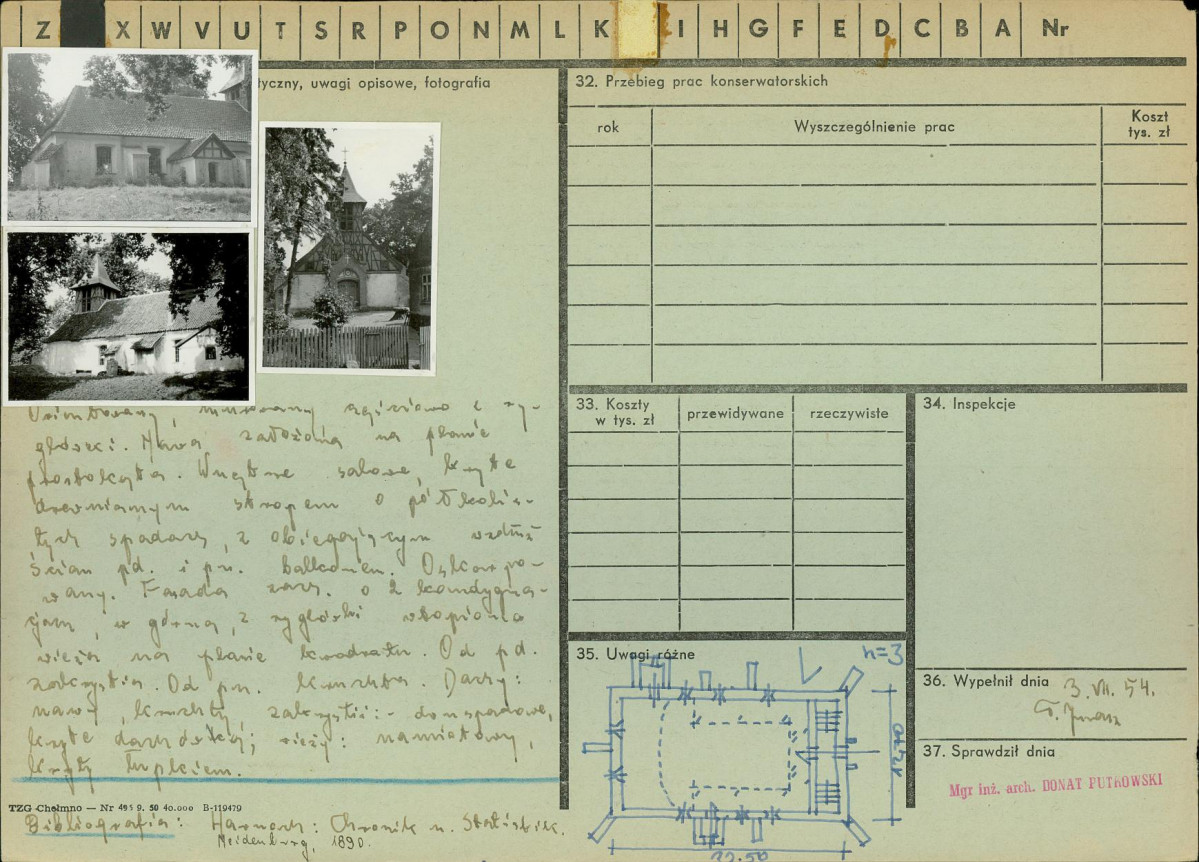 Z X W V U T S R P O N M L K I H G F E D C B A Nr
tyczny, uwagi opisowe, fotografia
32. Przebieg prac konserwatorskich
rok
Wyszczególnienie prac
Koszt
tys. zł
murowany częściowo z ry-
glówki. Nawa założona na planie
prostokąta. Wnętrze salowe, kryte
drewnianym stropem o półkolis-
tych spadach, z obiegającym wzdłuż
ścian pd. i pn. balkonem. Oskarpo-
wany. Fasada zach. o 2 kondygna-
cjach, w górną, z ryglówki wtopiona
wieża na planie kwadratu. Od pd.
zakrystia. Od pn. kruchta. Dachy:
nawy, kruchty, zakrystii:- dwuspadowe,
kryte dachówką; wieży: namiotowy,
kryty łupkiem.
TZG Chełmno — Nr 495 9. 50 40.000 B-119479
Bibliografia: Harnoch: Chronik u. Statistik.
Neidenburg, 1890.
33. Koszty
w tys. zł
przewidywane
rzeczywiste
34. Inspekcje
35. Uwagi różne
n=3
12.50
36. Wypełnił dnia 3.VII.54.
37. Sprawdził dnia
Mgr inż. arch. DONAT PUTKOWSKI